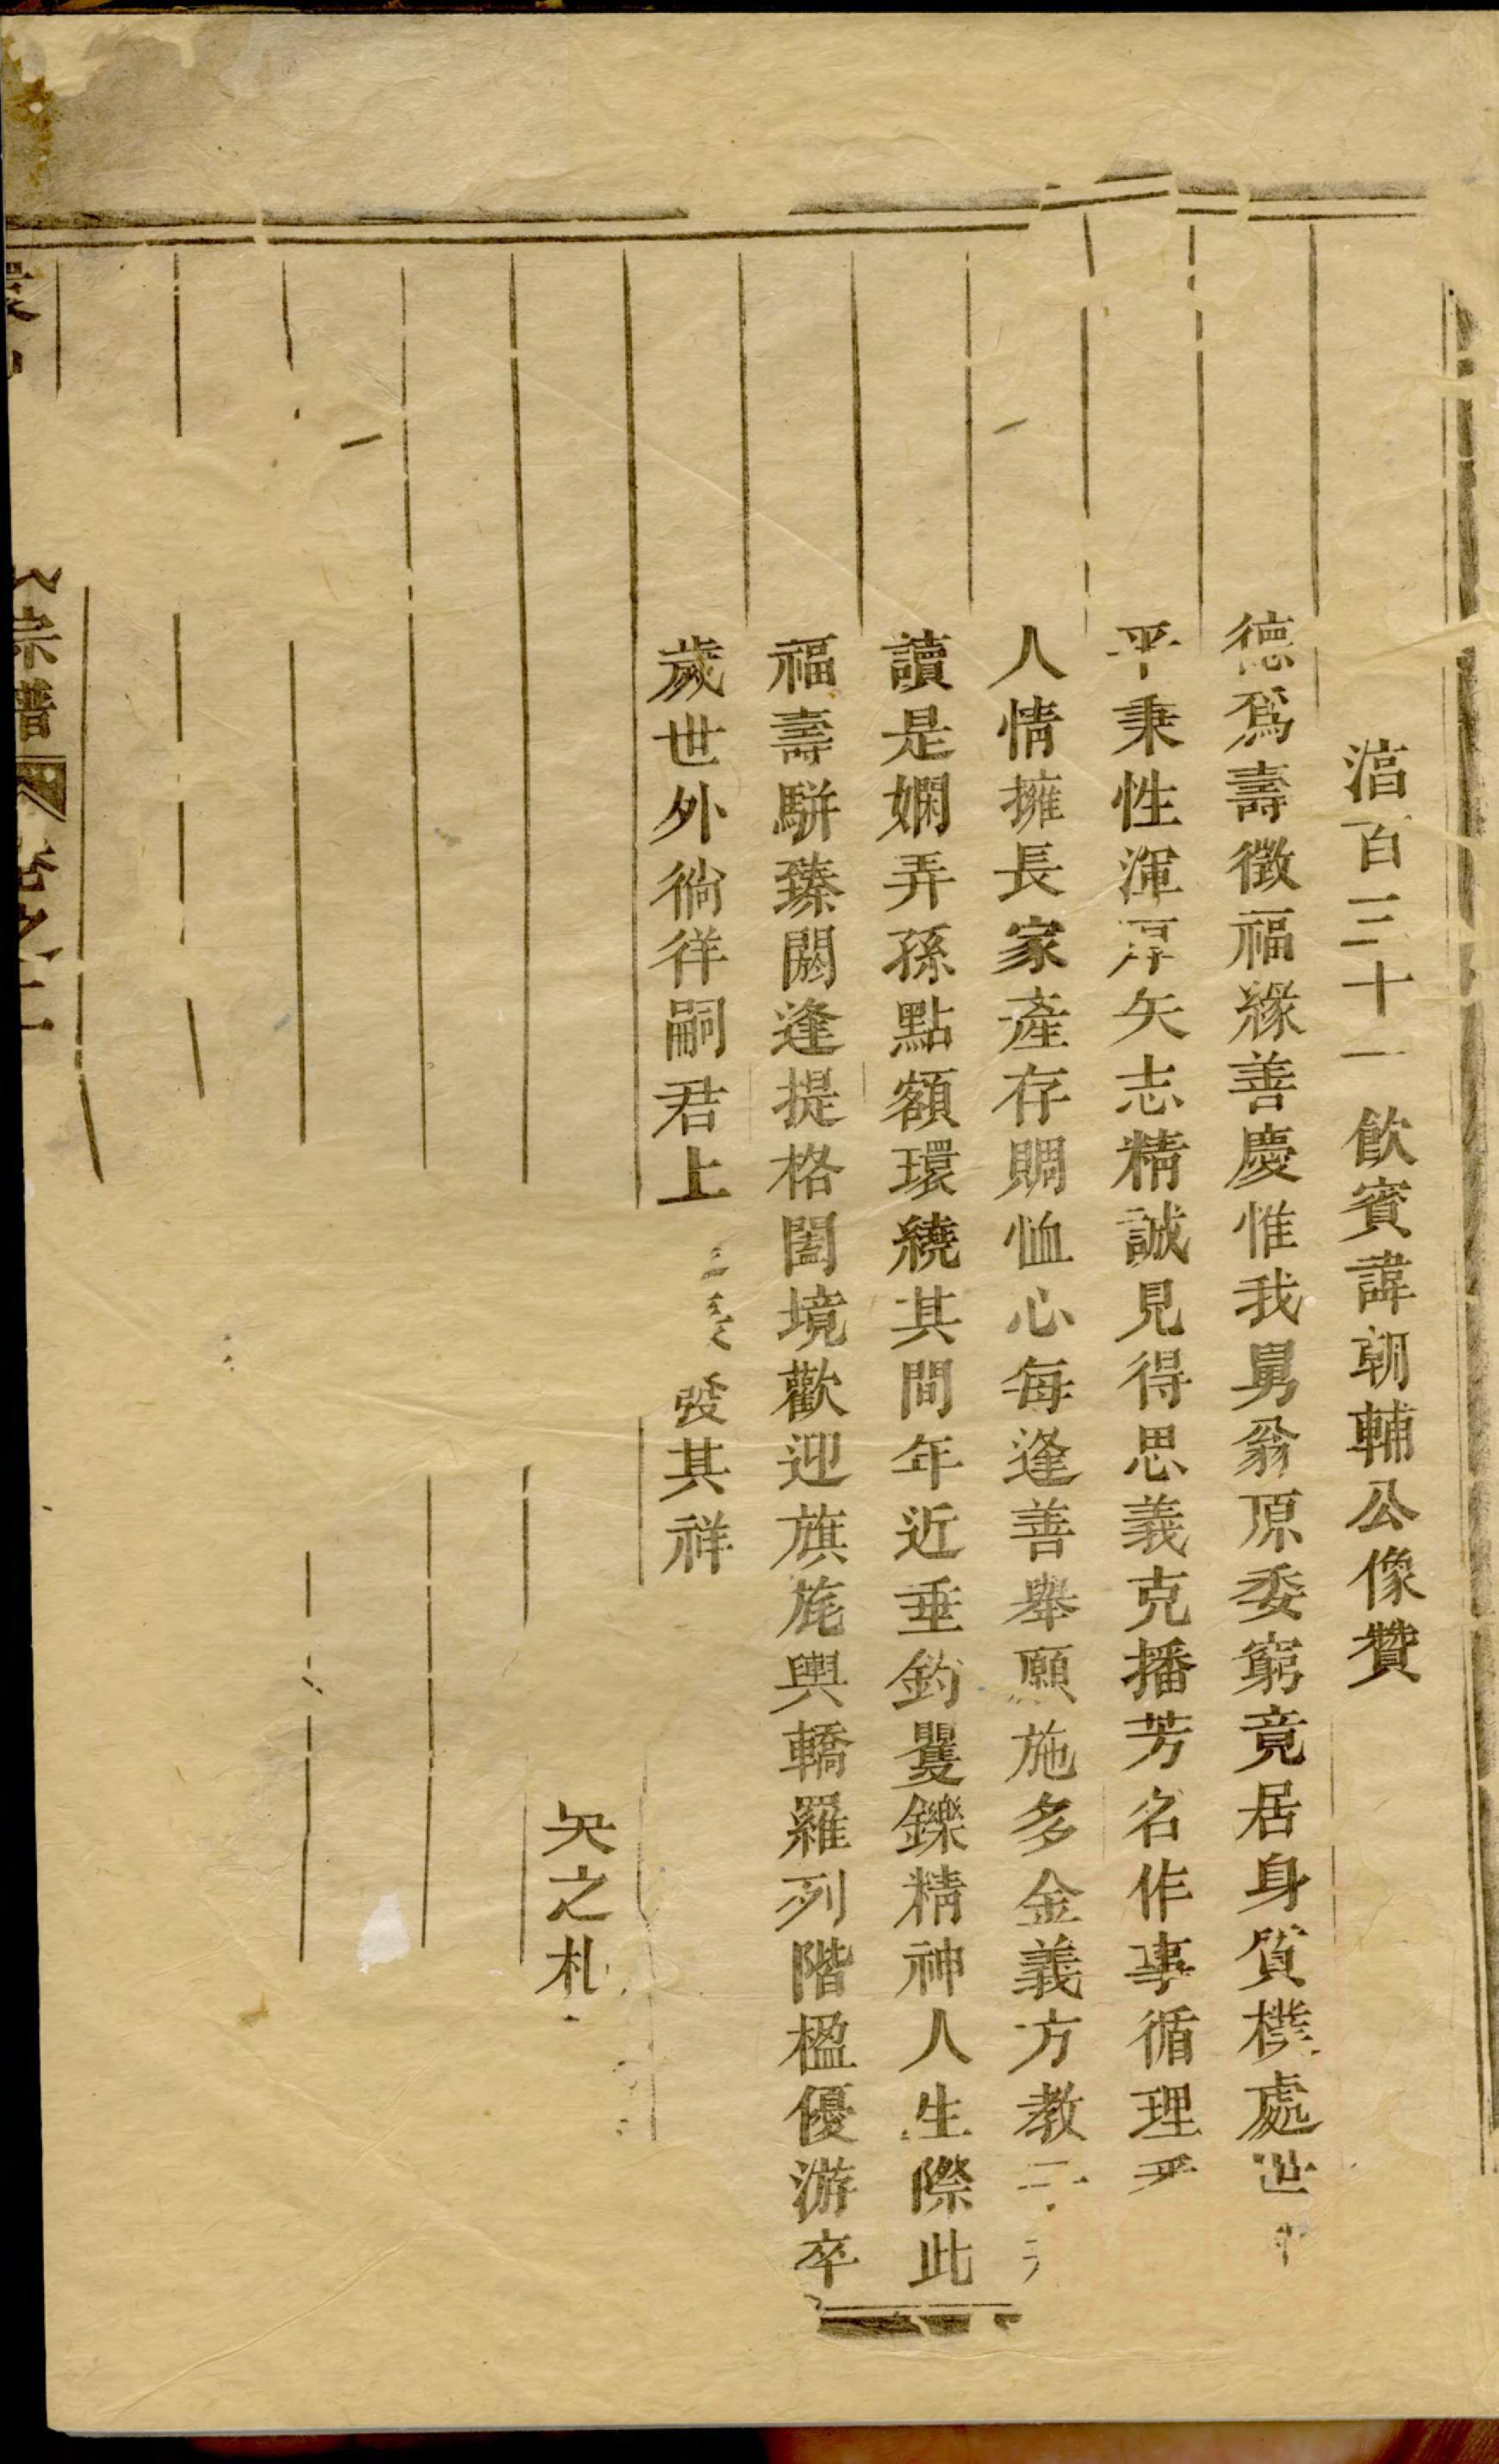 湻百三十一飲賓諱朝輔公像贊
德爲壽徵福緣善慶惟我舅翁原委窮竟居身質樸處世
平秉性渾厚矢志精誠見得思義克播芳名作事循理
人情擁長家產存賙恤心每逢善舉願施多金義方教子
讀是嫻弄孫點額環繞其間年近垂釣矍鑠精神人生際此
福壽駢臻閼逢提格闔境歡迎旗旄輿轎羅列階楹優游卒
歲世外徜徉嗣君上 發其祥
矢之札
宗譜